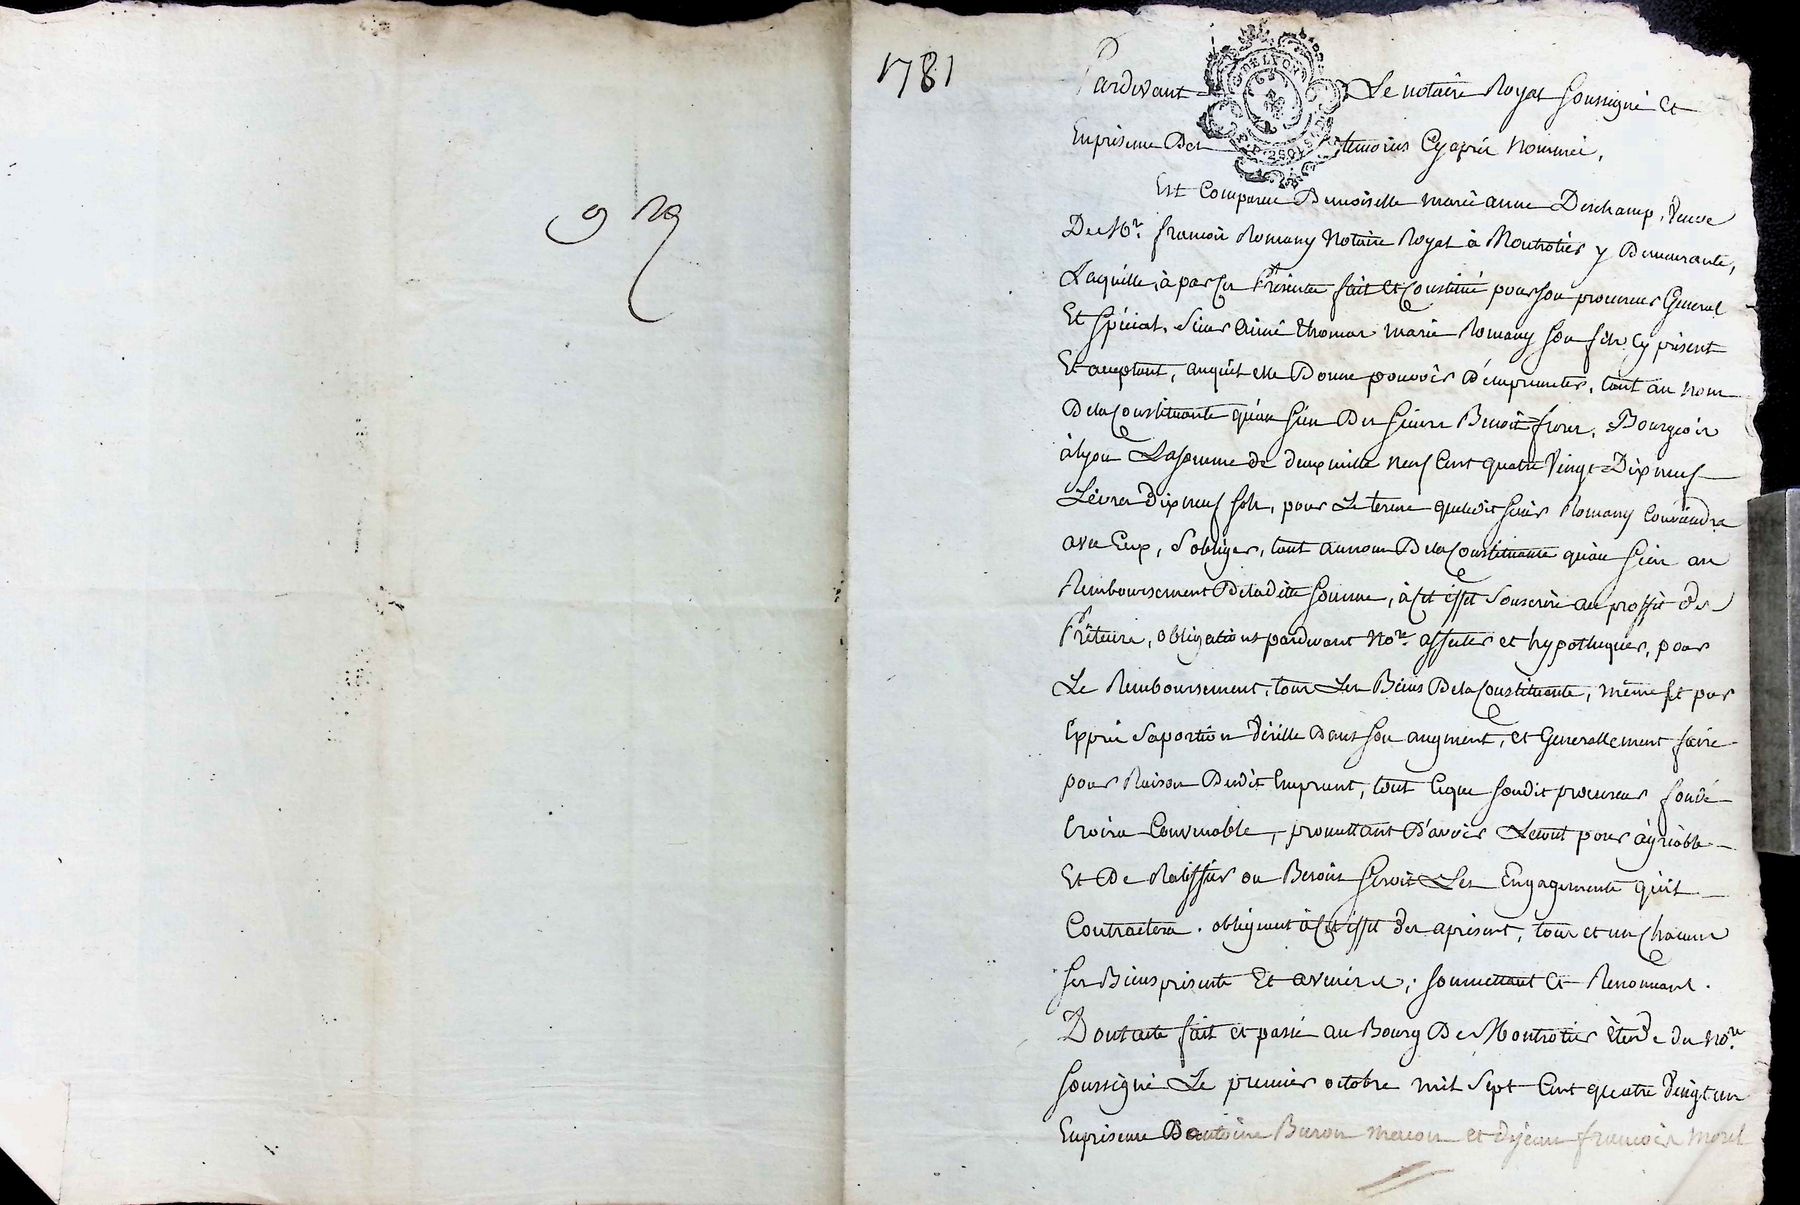 1781
G. DE LYON
Pardevant Le notaire Royal soussigné et
En presence Des temoins Cyaprès Nommés,
Est Comparue Demoiselle marie anne Deschamp, Veuve
De Mr. françois Romany Notaire Royal à Montrotier y Demeurante,
Laquelle, à par Ces Présentes fait et Constitué pour son procureur General
Et spécial, sieur aimé thomas marie Romany son fils Cy présent
Et acceptant, auquel elle Donne pouvoir D'emprunter, tant au nom
De la Constituante qu'au sien Des sieurs Benoit freres, Bourgeois
à lyon La somme de deux mille neuf Cent quatre Vingt Dix neuf
Livres dix neuf sols, pour Le terme que ledit sieur Romany Conviendra
avec Eux, s'obliger, tant au nom De la Constituante qu'au sien au
Remboursement De ladite somme, à Cet effet souscrire au proffit des
Prêteurs, obligations pardevant Nore. affecter et hypothequer, pour
Le Remboursement, tous Les Biens De la Constituante, même et par
Exprès sa portion Virille Dans son augment, et Generallement faire
pour Raison Dudit Emprunt, tout Ceque sondit procureur fondé
Croira Convenable, promettant D'avoir Letout pour agréable
Et De Ratiffier au Besoin seroit Les Engagements qu'il
Contractera. obligeant à Cet effet des apresent, tous et un Chacun
ses Biens présents Et avenirs, soumettant Et Renonçant.
Dont acte fait et passé au Bourg De Montrotier Etude du Nore.
soussigné Le premier octobre mil sept Cent quatre Vingt un
En presence D'antoine Buron et de jean françois Morel